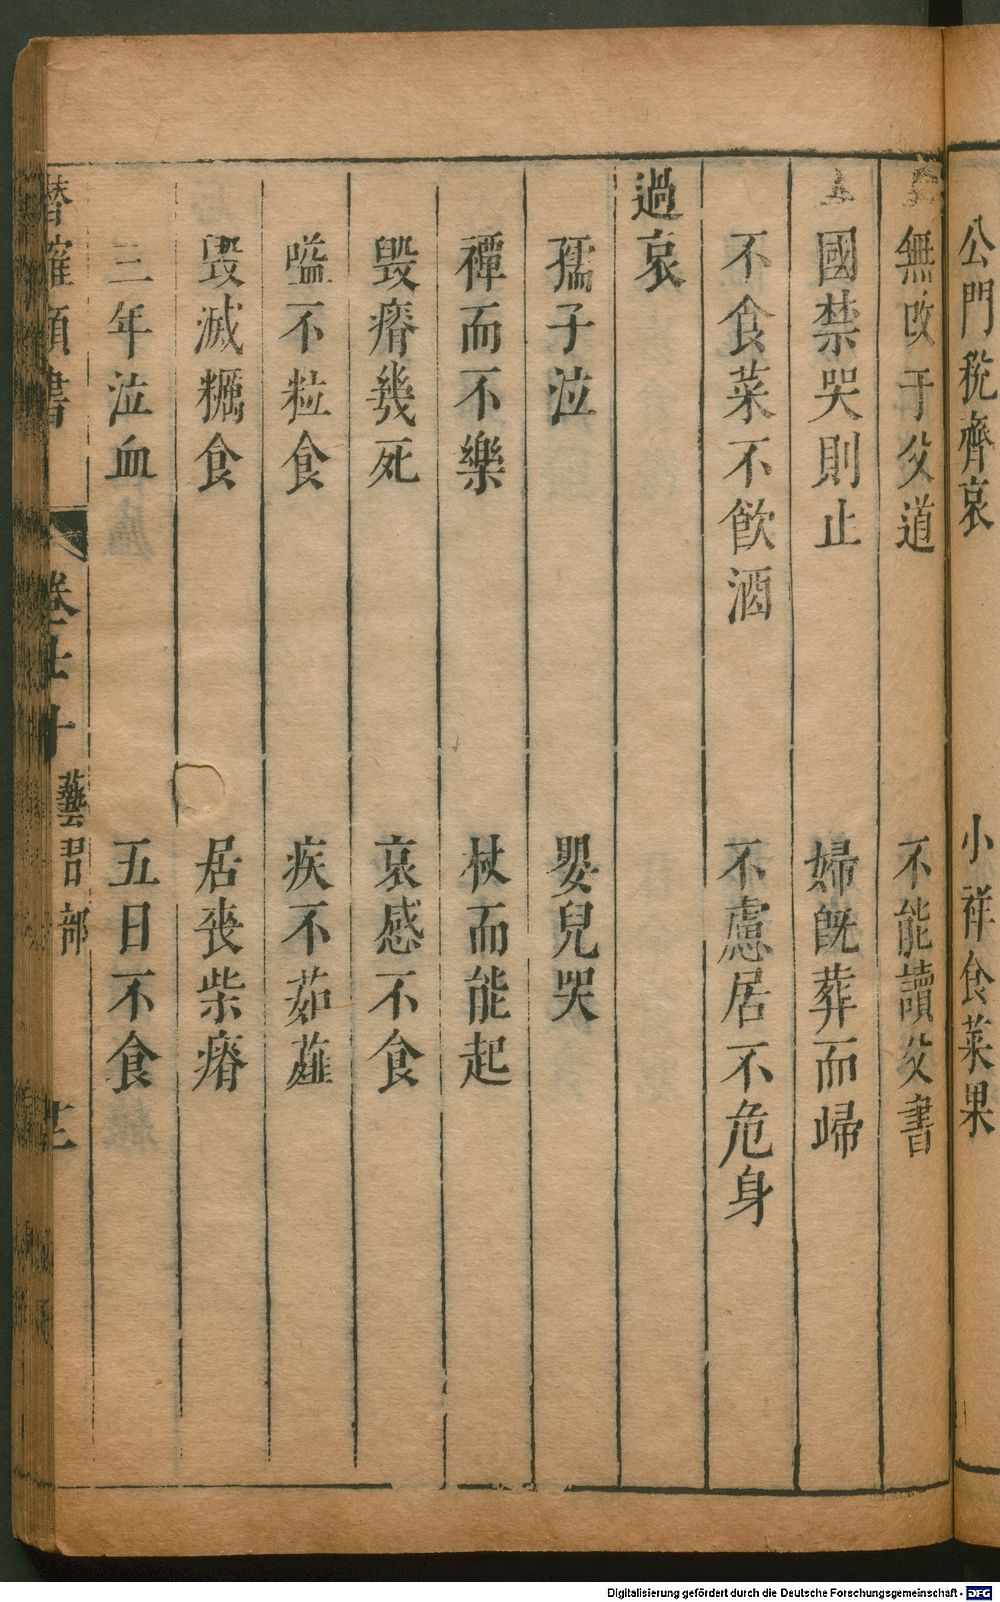 公門稅齊哀　小祥食菜果
無改于父道　不能讀父書
國禁哭則止　婦既葬而歸
不食菜不飲酒　不慮居不危身
過哀
孺子泣　嬰兒哭
禫而不樂　杖而能起
毀瘠幾死　哀感不食
嗌不粒食　疾不茹薤
毀滅糲食　居喪柴瘠
三年泣血　五日不食
類書　卷　藝習部
Digitalisierung gefördert durch die Deutsche Forschungsgemeinschaft - DFG